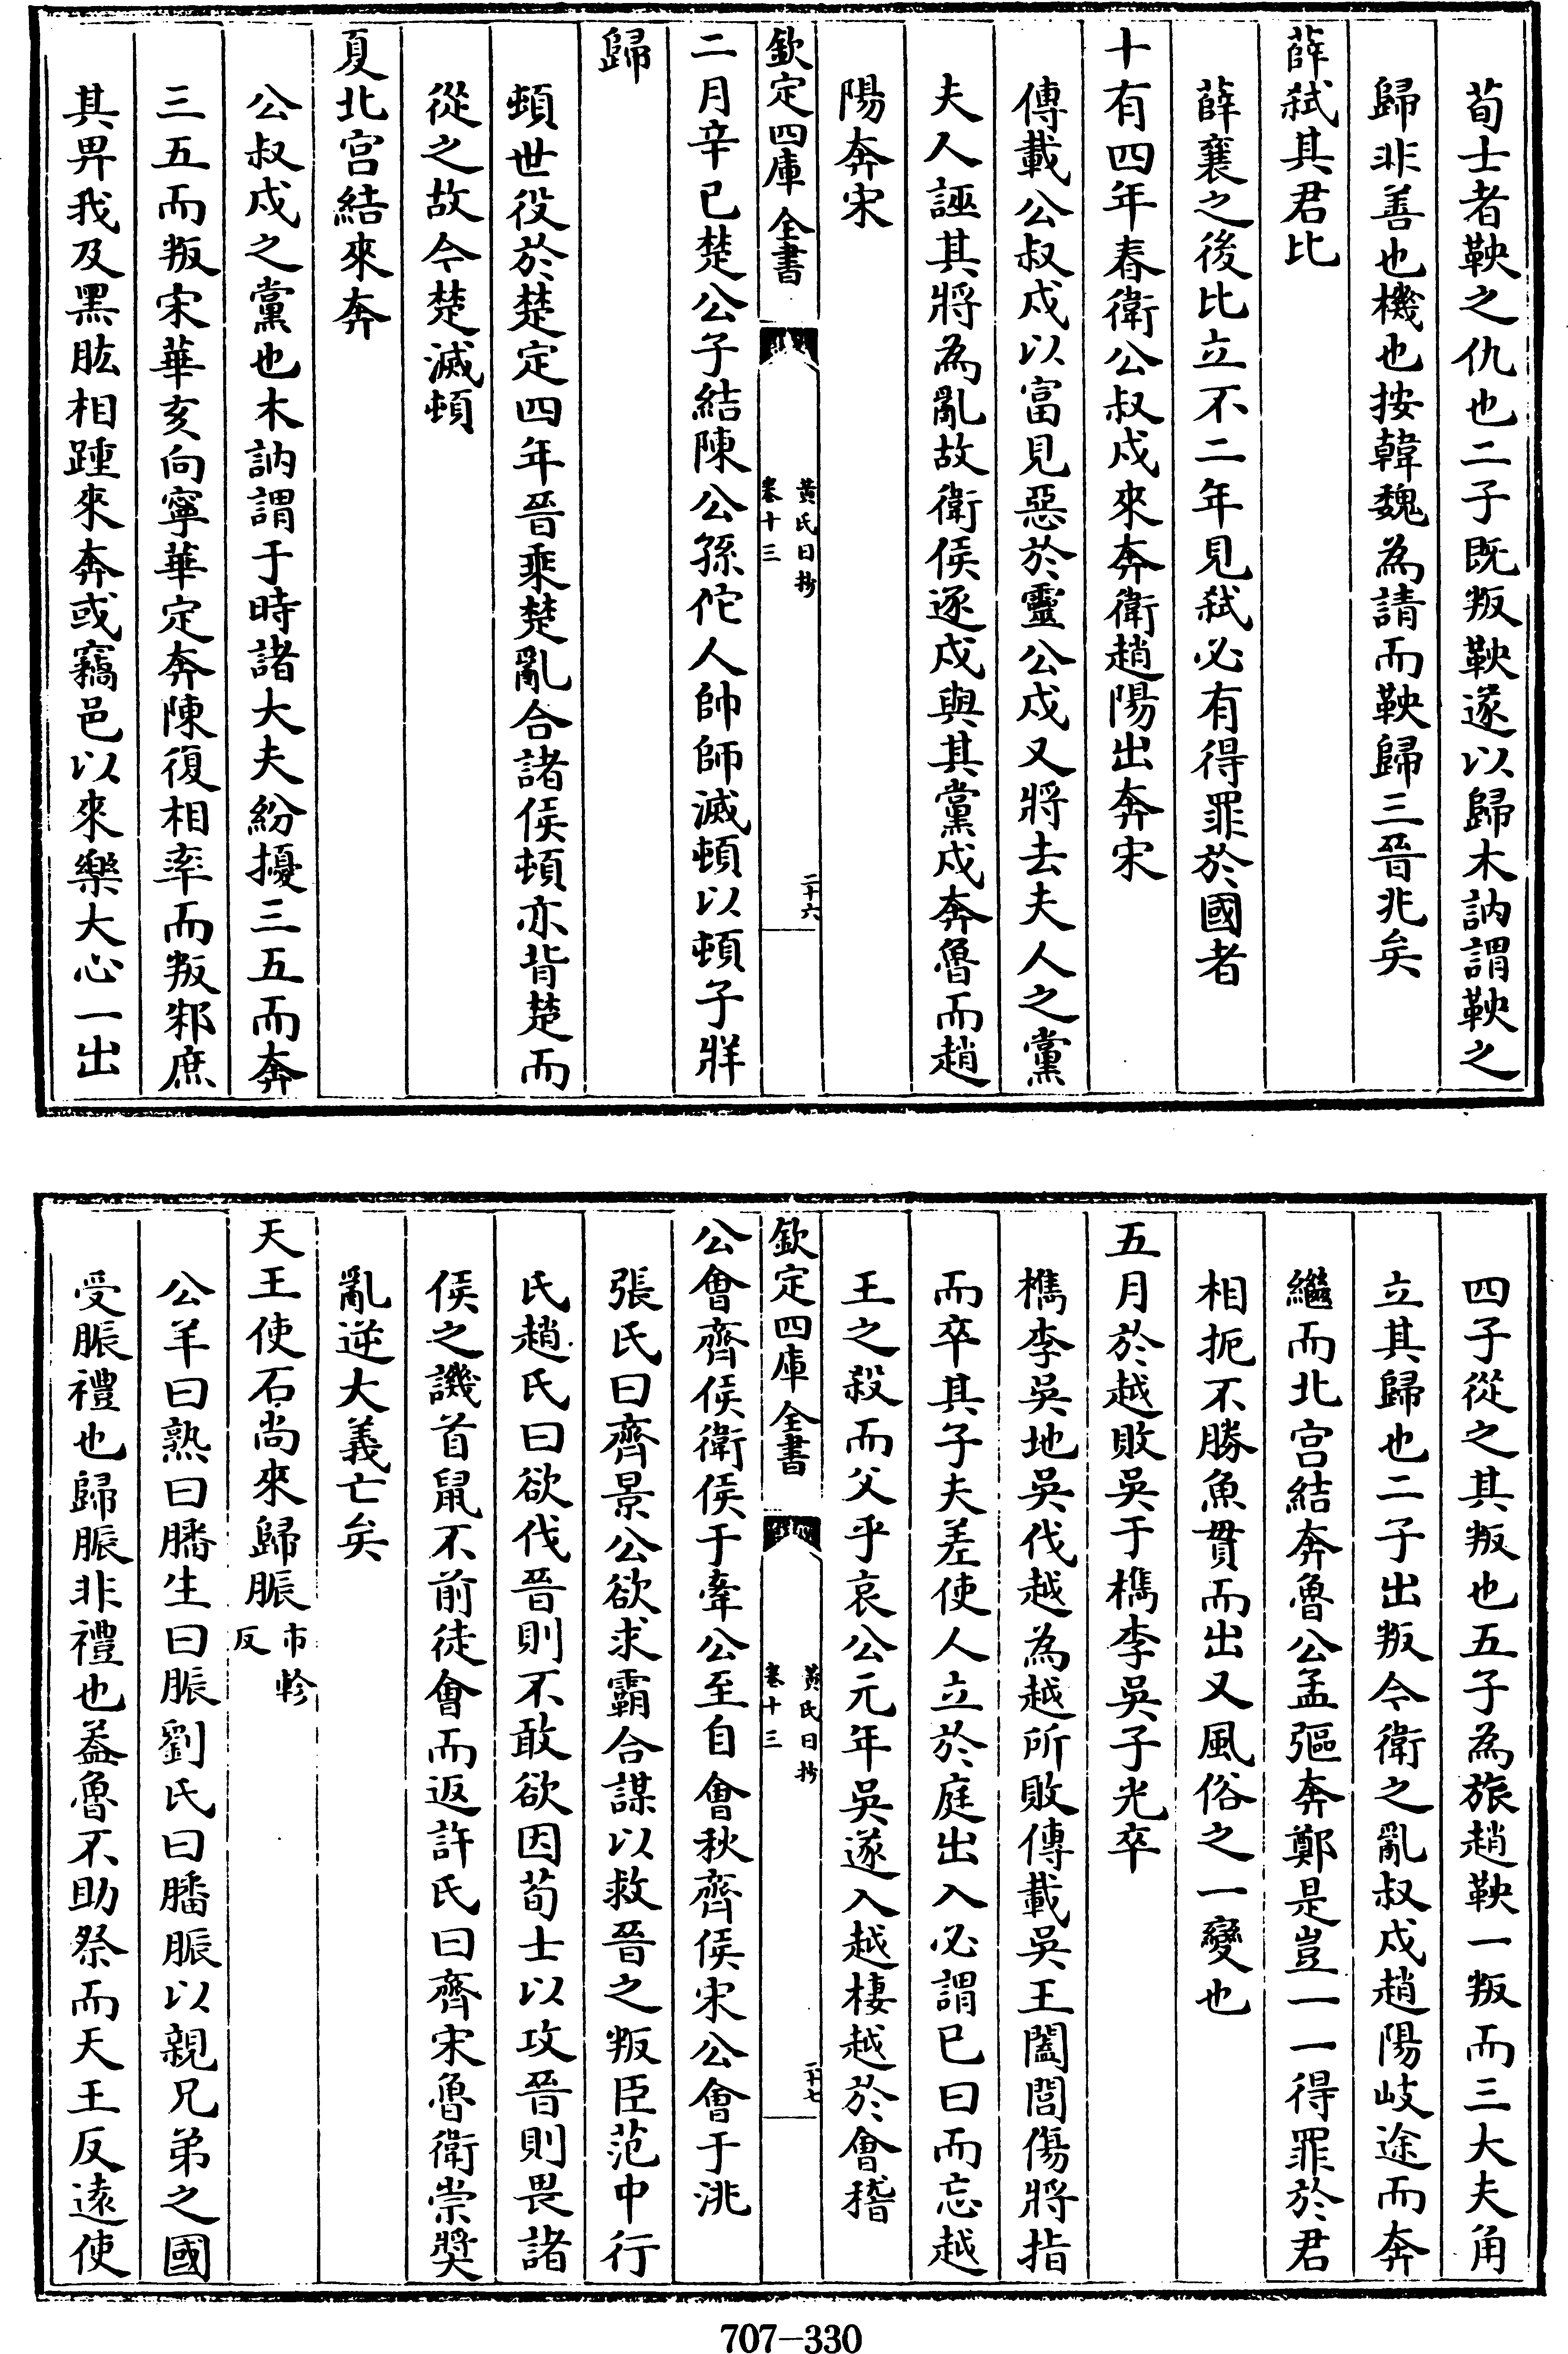 荀士者鞅之仇也二子既叛鞅遂以歸木訥謂鞅之
歸非善也機也按韓魏為請而鞅歸三晉兆矣
薛弑其君比
薛襄之後比立不二年見弑必有得罪於國者
十有四年春衛公叔戍來奔衛趙陽出奔宋
傳載公叔戍以富見惡於靈公戍又將去夫人之黨
夫人誣其將為亂故衛侯逐戍與其黨戍奔魯而趙
陽奔宋
欽定四庫全書
黃氏日抄
卷十三
二十六
二月辛巳楚公子結陳公孫佗人帥師滅頓以頓子牂
歸
頓世役於楚定四年晉乘楚亂合諸侯頓亦背楚而
從之故今楚滅頓
夏北宫結來奔
公叔戍之黨也木訥謂于時諸大夫紛擾三五而奔
三五而叛宋華亥向寧華定奔陳復相率而叛邾庶
其畀我及黑肱相踵來奔或竊邑以來樂大心一出
四子從之其叛也五子為旅趙鞅一叛而三大夫角
立其歸也二子出叛今衛之亂叔戍趙陽岐途而奔
繼而北宫結奔魯公孟彄奔鄭是豈一一得罪於君
相扼不勝魚貫而出又風俗之一變也
五月於越敗吳于檇李吳子光卒
檇李吳地吳伐越為越所敗傳載吳王闔閭傷將指
而卒其子夫差使人立於庭出入必謂已曰而忘越
王之殺而父乎哀公元年吳遂入越棲越於會稽
欽定四庫全書
黃氏日抄
卷十三
二十七
公會齊侯衛侯于牽公至自會秋齊侯宋公會于洮
張氏曰齊景公欲求霸合謀以救晉之叛臣范中行
氏趙氏曰欲伐晉則不敢欲因荀士以攻晉則畏諸
侯之譏首鼠不前徒會而返許氏曰齊宋魯衛崇奬
亂逆大義亡矣
天王使石尚來歸脤市軫反
公羊曰熟曰膰生曰脤劉氏曰膰脤以親兄弟之國
受脤禮也歸脤非禮也葢魯不助祭而天王反遠使
707-330